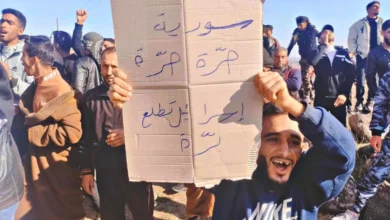 سورية
حرّة حرّة
إسرائيل تطلع
برّة
NIKE